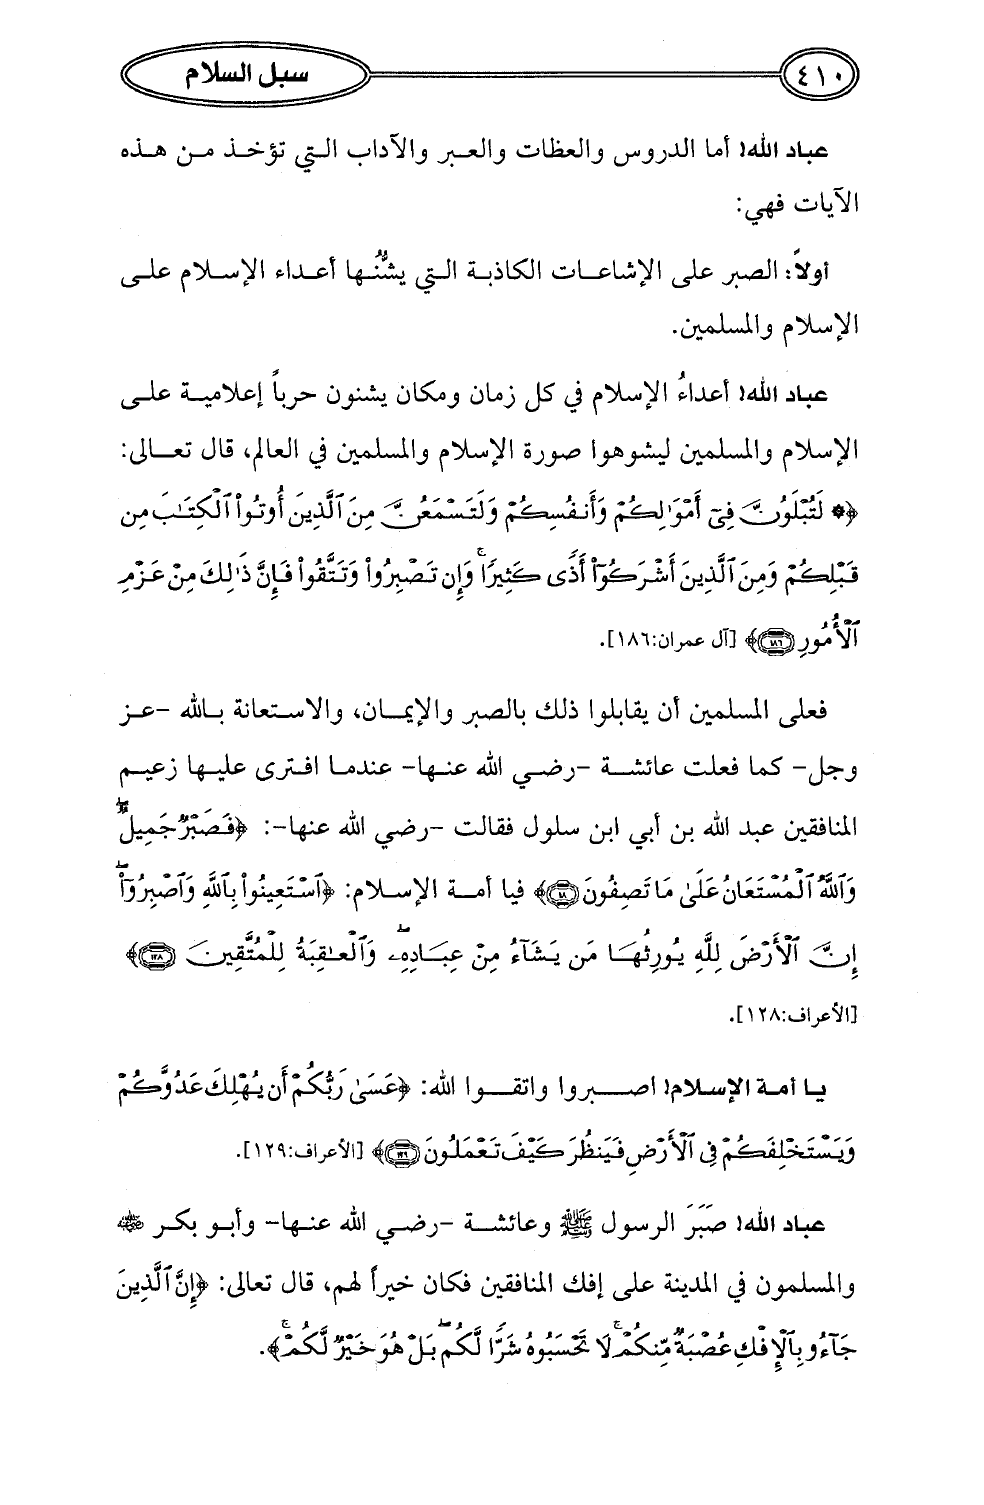 ٤١٠ سبل السلام
عباد الله! أما الدروس والعظات والعبر والآداب التي تؤخذ من هذه
الآيات فهي:
أولاً: الصبر على الإشاعات الكاذبة التي يشنُّها أعداء الإسلام على
الإسلام والمسلمين.
عباد الله! أعداءُ الإسلام في كل زمان ومكان يشنون حرباً إعلامية على
الإسلام والمسلمين ليشوهوا صورة الإسلام والمسلمين في العالم، قال تعالى:
﴿۞ لَتُبْلَوُنَّ فِىٓ أَمْوَٰلِكُمْ وَأَنفُسِكُمْ وَلَتَسْمَعُنَّ مِنَ ٱلَّذِينَ أُوتُوا۟ ٱلْكِتَٰبَ مِن
قَبْلِكُمْ وَمِنَ ٱلَّذِينَ أَشْرَكُوٓا۟ أَذًى كَثِيرًا ۚ وَإِن تَصْبِرُوا۟ وَتَتَّقُوا۟ فَإِنَّ ذَٰلِكَ مِنْ عَزْمِ
ٱلْأُمُورِ ١٨٦﴾ [آل عمران:١٨٦].
فعلى المسلمين أن يقابلوا ذلك بالصبر والإيمان، والاستعانة بالله -عز
وجل- كما فعلت عائشة -رضي الله عنها- عندما افترى عليها زعيم
المنافقين عبد الله بن أبي ابن سلول فقالت -رضي الله عنها-: ﴿فَصَبْرٌ جَمِيلٌ ۖ
وَٱللَّهُ ٱلْمُسْتَعَانُ عَلَىٰ مَا تَصِفُونَ ١٨﴾ فيا أمة الإسلام: ﴿ٱسْتَعِينُوا۟ بِٱللَّهِ وَٱصْبِرُوٓا۟ ۖ
إِنَّ ٱلْأَرْضَ لِلَّهِ يُورِثُهَا مَن يَشَآءُ مِنْ عِبَادِهِۦ ۖ وَٱلْعَٰقِبَةُ لِلْمُتَّقِينَ ١٢٨﴾
[الأعراف:١٢٨].
يا أمة الإسلام! اصبروا واتقوا الله: ﴿عَسَىٰ رَبُّكُمْ أَن يُهْلِكَ عَدُوَّكُمْ
وَيَسْتَخْلِفَكُمْ فِى ٱلْأَرْضِ فَيَنظُرَ كَيْفَ تَعْمَلُونَ ١٢٩﴾ [الأعراف:١٢٩].
عباد الله! صَبَرَ الرسول ﷺ وعائشة -رضي الله عنها- وأبو بكر
والمسلمون في المدينة على إفك المنافقين فكان خيراً لهم، قال تعالى: ﴿إِنَّ ٱلَّذِينَ
جَآءُو بِٱلْإِفْكِ عُصْبَةٌ مِّنكُمْ ۚ لَا تَحْسَبُوهُ شَرًّا لَّكُم ۖ بَلْ هُوَ خَيْرٌ لَّكُمْ ۚ﴾.